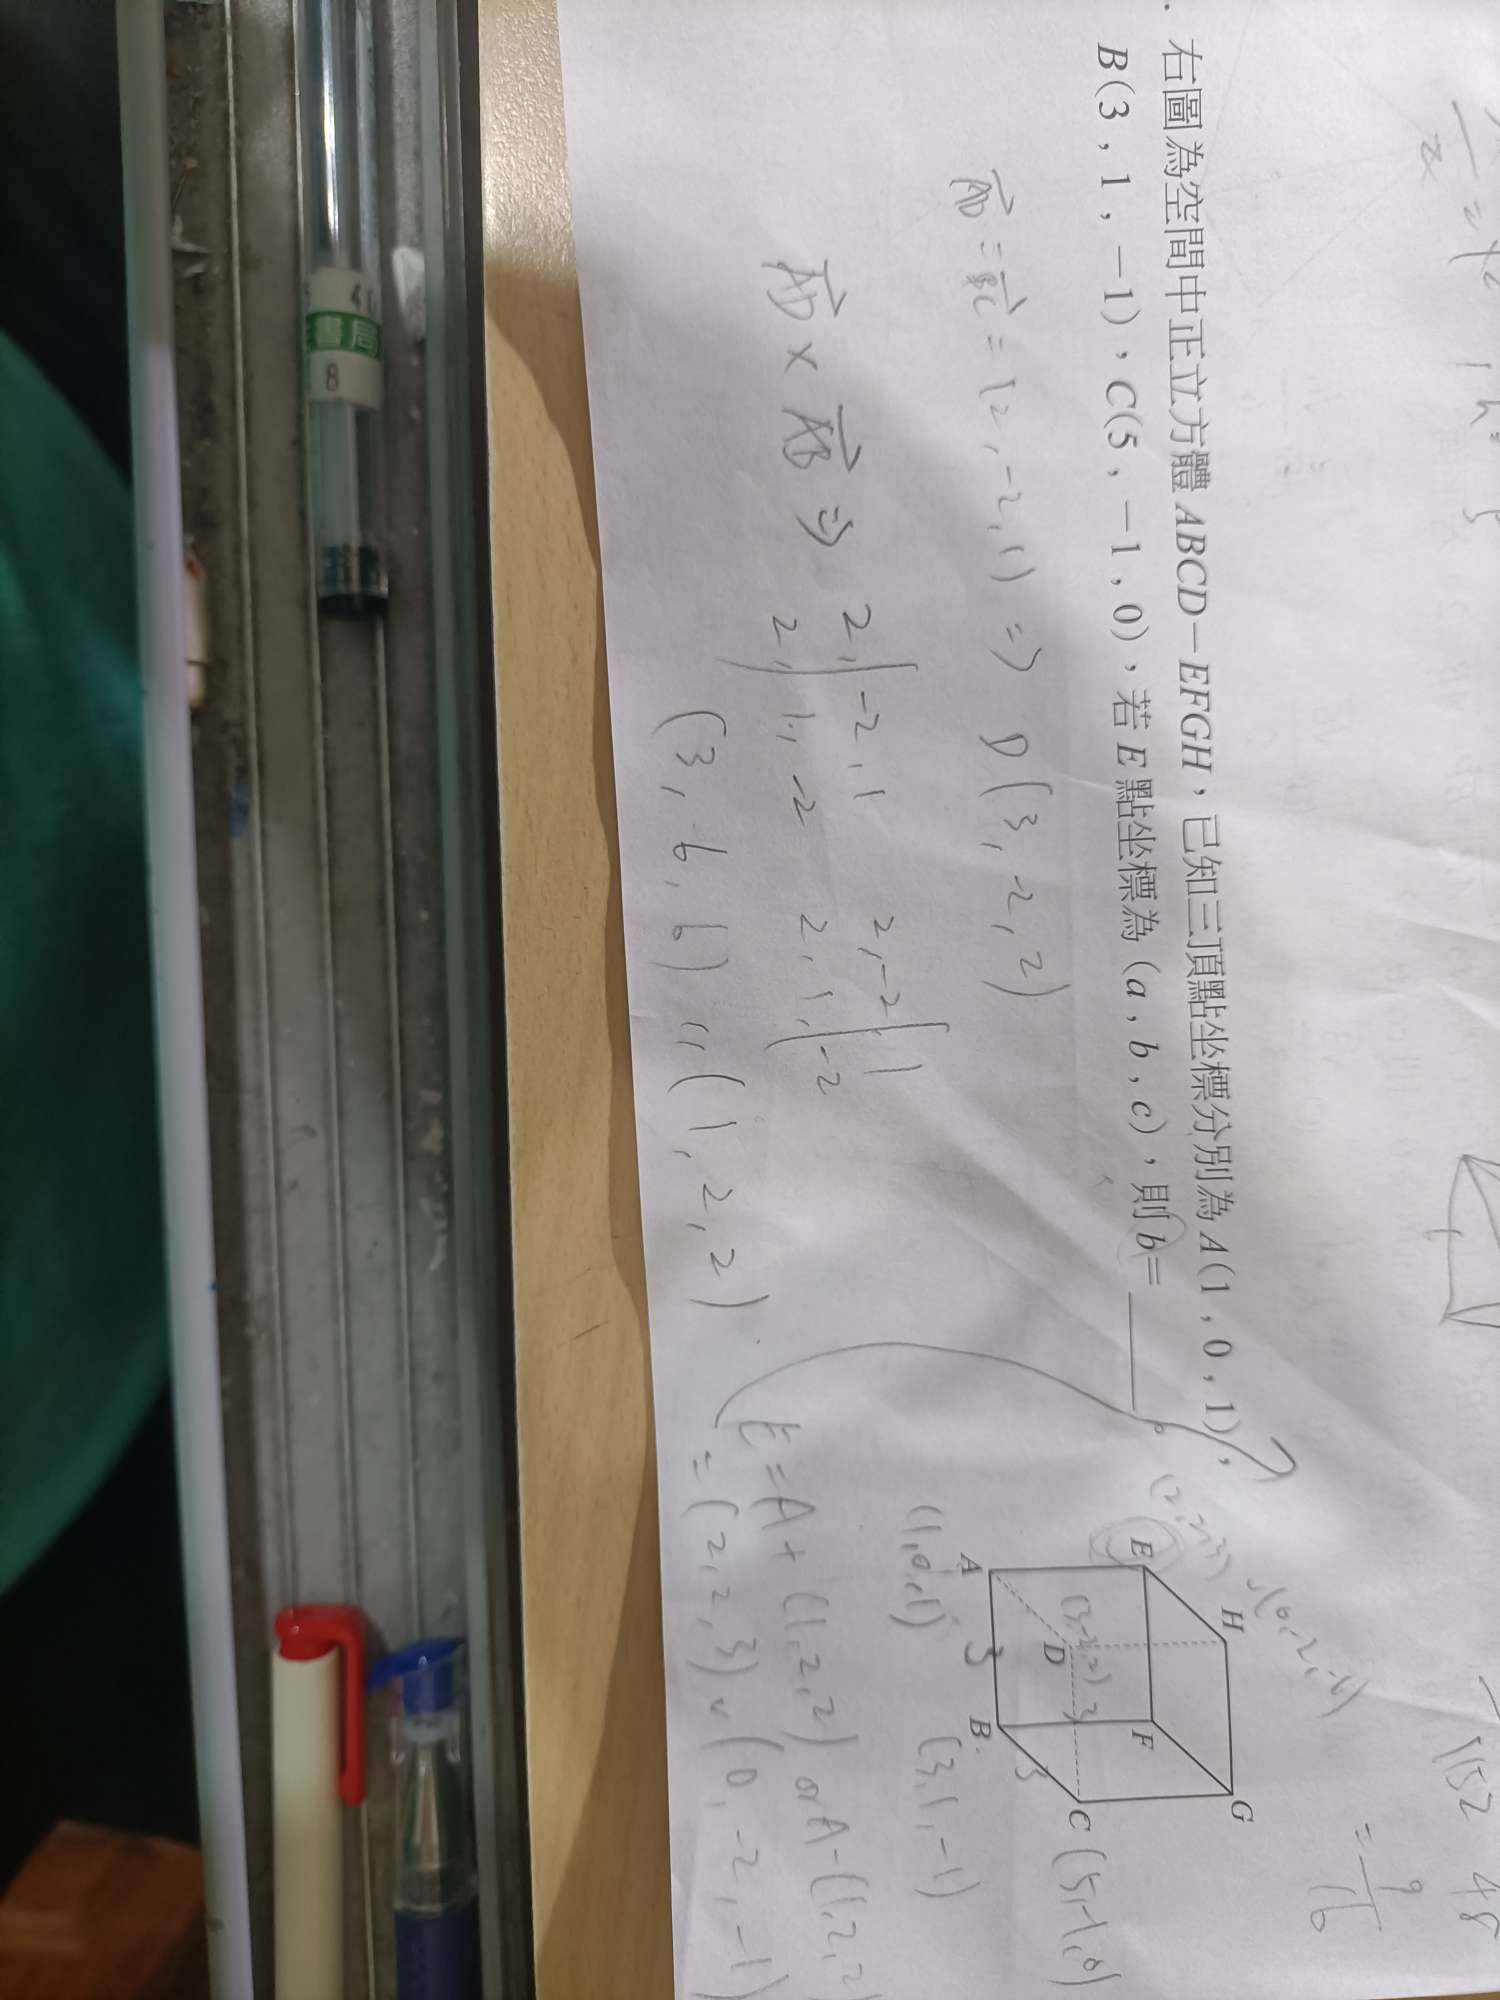 右圖為空間中正立方體 ABCD－EFGH，已知三頂點坐標分別為 A(1，0，1)，
B(3，1，－1)、C(5，－1，0)，若 E 點坐標為 (a，b，c)，則 b＝＿＿＿。
AD = BC = (2, -2, 1) => D(3, -2, 2)
AD × AB => 2, | -2, 1 2, -2 | 1
2, | 1, -2 2, 1, | -2
(3, 6, 6) // (1, 2, 2)
E = A + (1, 2, 2) or A - (1, 2, 2)
= (2, 2, 3) v (0, -2, -1)
(2, 2, 3) v (0, -2, -1)
H
G
E
F
(3, -2, 2)
D
3
C (5, -1, 0)
A
3
B
3
(1, 0, 1)
(3, 1, -1)
= 9/16
書局
8